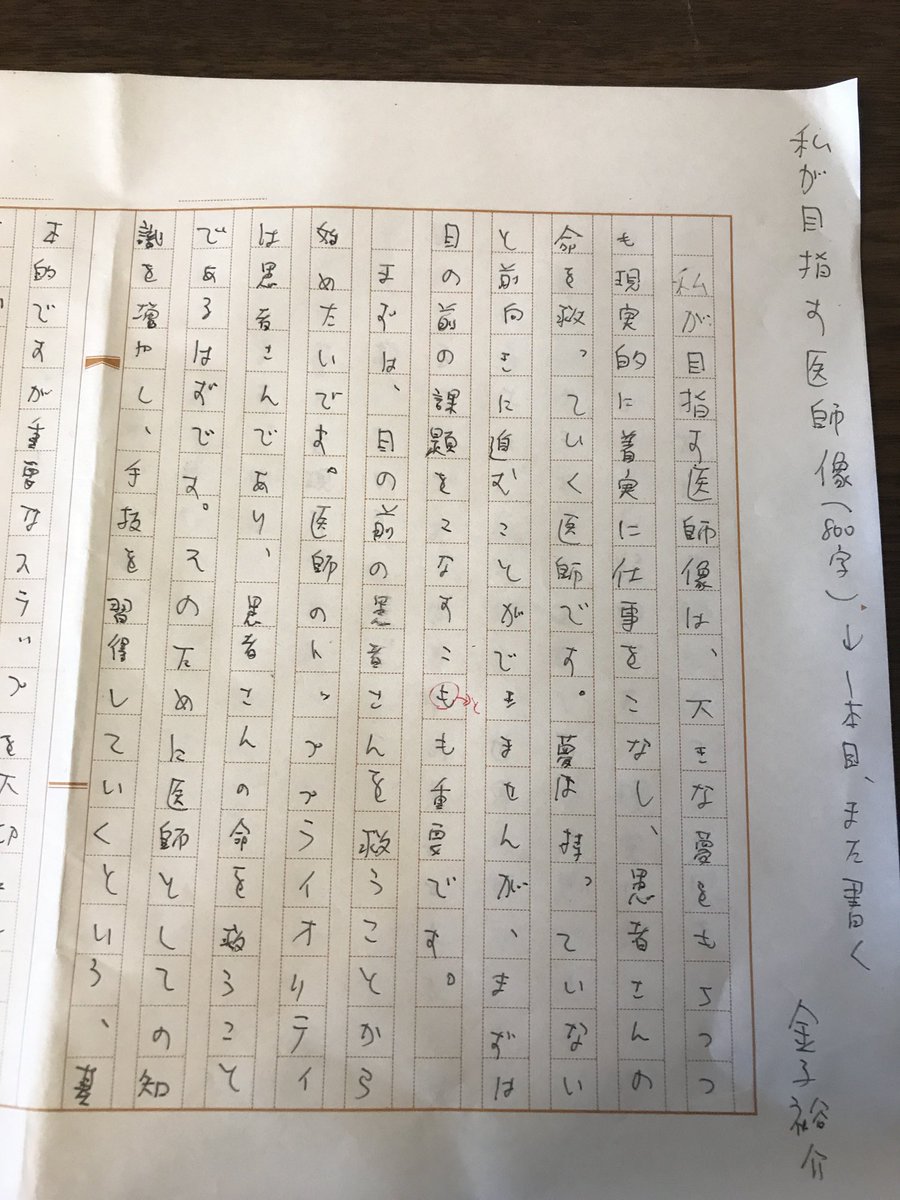 私が目指す医師像(800字).↓一本目、また書く 金子裕介
私が目指す医師像は、大きな夢をもちつつ
も現実的に着実に仕事をこなし、患者さんの
命を救っていく医師です。夢は持っていない
と前向きに進むことができませんが、まずは
目の前の課題をこなすこももも重要です。
→と
まずは、目の前の患者さんを救うことから
始めたいです。医師のトッププライオリティ
は患者さんであり、患者さんの命を救うこと
であるはずです。そのために医師としての知
識を増やし、手技を習得していくという、基
本的ですが重要なステップを大